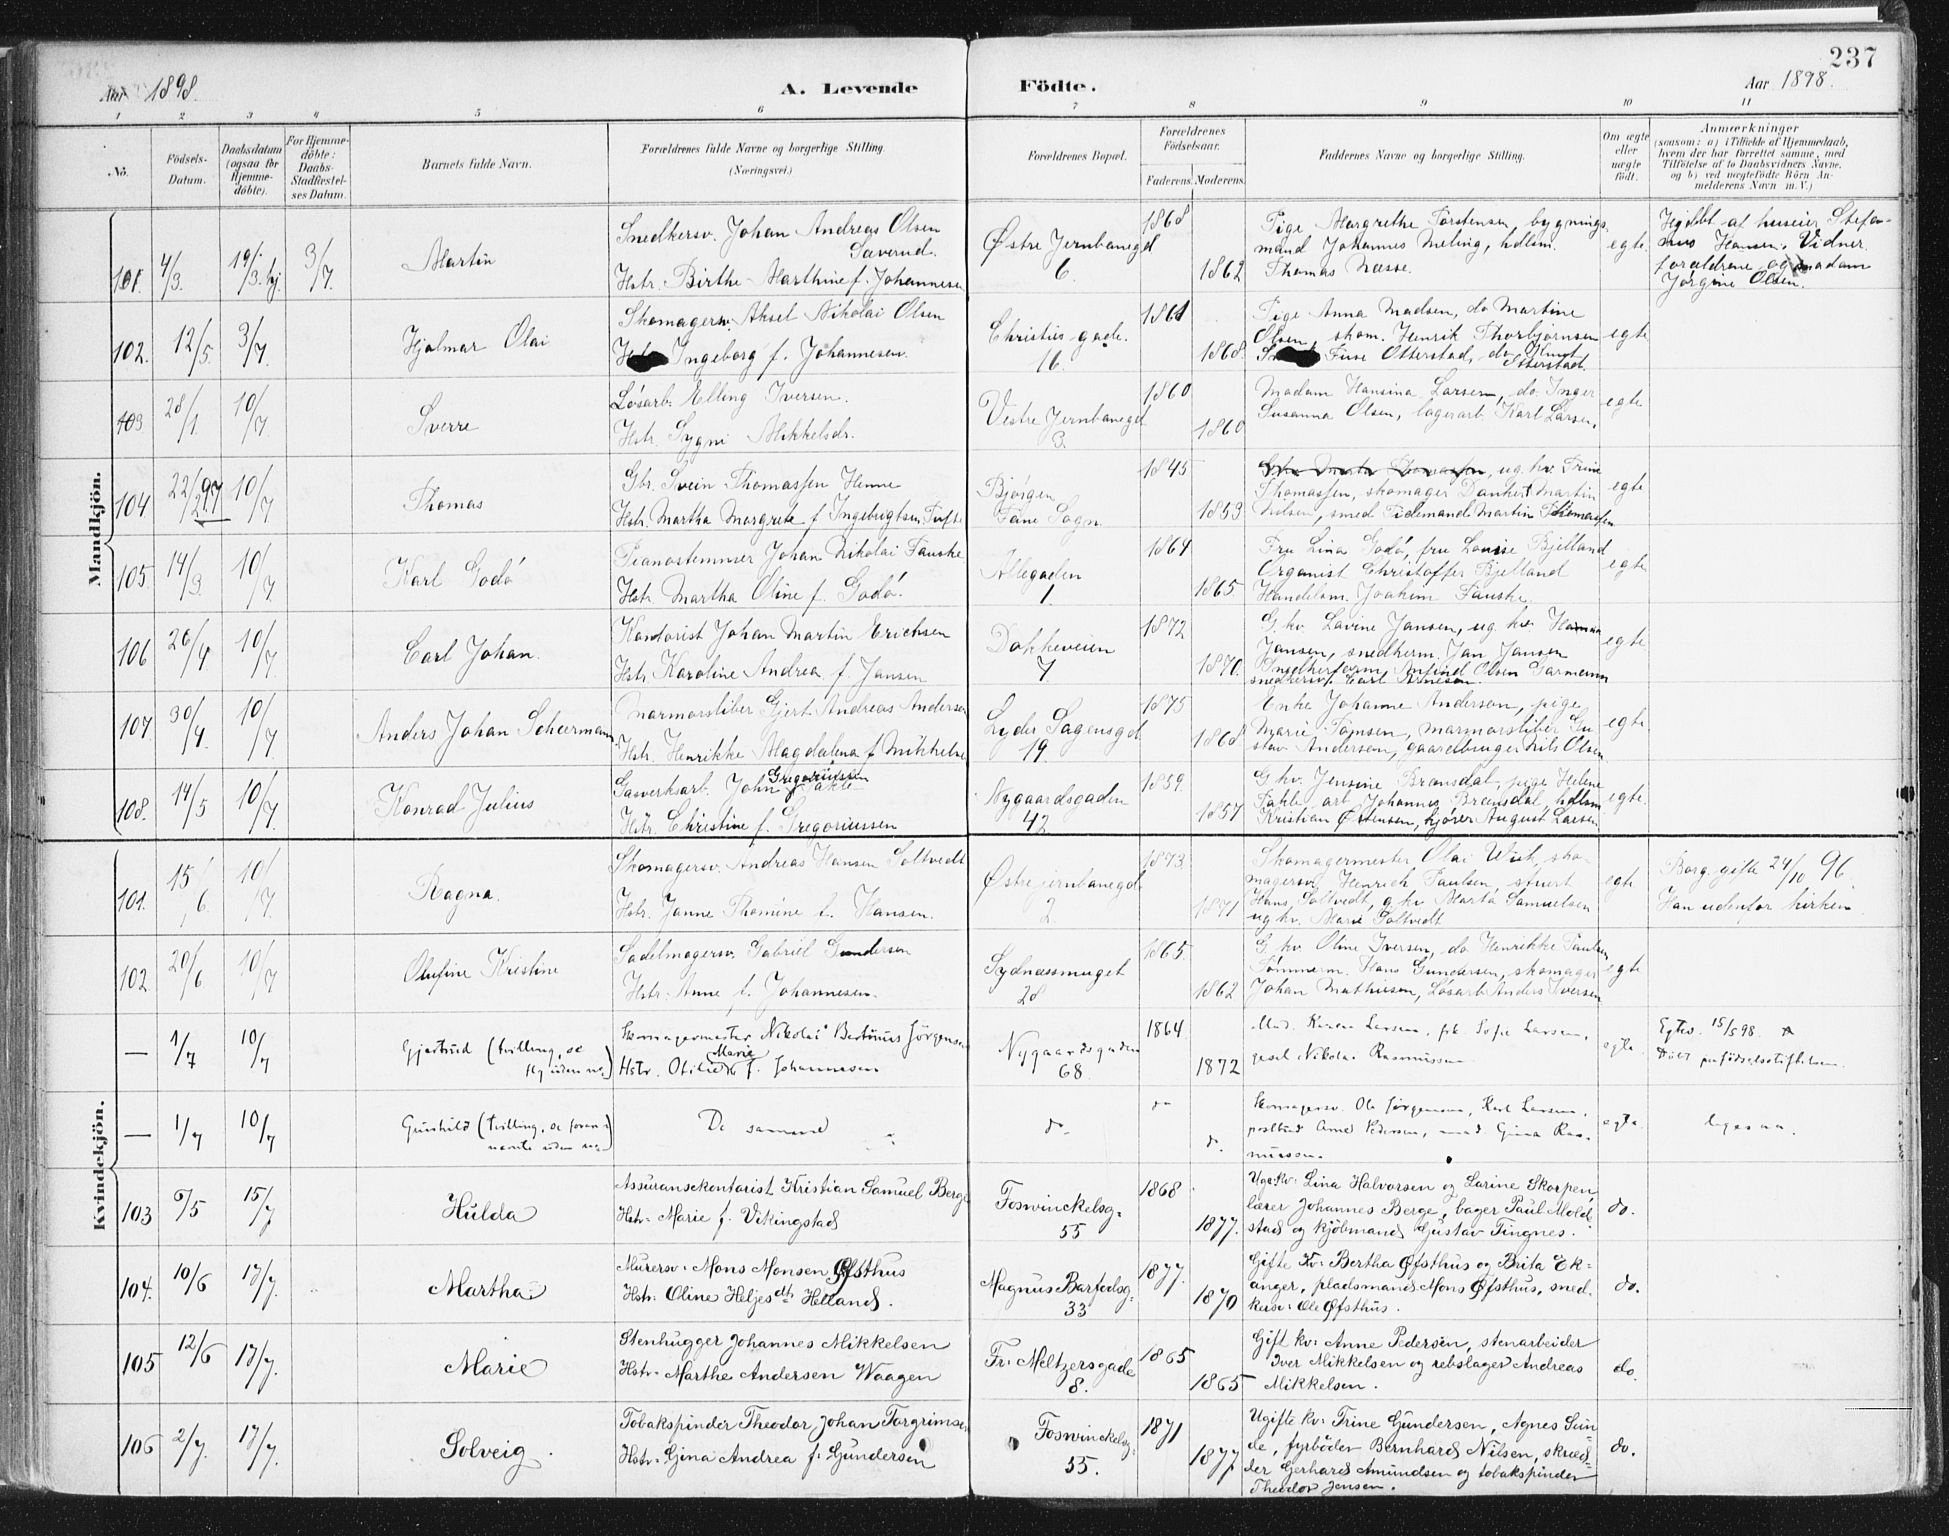 237
Aar 1898.
A. Levende Födte.
Aar 1898.
1 2 3 4 5 6 7 8 9 10 11
No.
Födsels-Datum.
Daabsdatum (ogsaa for Hjemme-döbte).
For Hjemme-döbte: Daabs-Stadfæstel-ses Datum.
Barnets fulde Navn.
Forældrenes fulde Navne og borgerlige Stilling. (Næringsvei.)
Forældrenes Bopæl.
Forældrenes Födselsaar.
Faderens. Moderens.
Faddernes Navne og borgerlige Stilling.
Om ægte eller uægte födt.
Anmærkninger
(saasom: a) i Tilfælde af Hjemmedaab,
hvem der har forrettet samme, med
Tilföielse af to Daabsvidners Navne,
og b) ved uægtefödte Börn An-
melderens Navn m. V.)
Mandkjön.
101. 4/3. 19/3. hj. 3/7 Martin
Snedkersv. Johan Andreas Olsen
Saverud.
Hstr. Birthe Marthine f. Johannesen
Østre Jernbanegd
6.
1868
1862
Pige Margrethe Torstensen, bygnings-
mand Johannes Meling, hdlsm.
Thomas Næsse.
egte
Hjdbt af huseier Stefa-
nus Hansen. Vidner
forældrene og madam
Jørgine Olsen.
102. 12/5 3/7. Hjalmar Olai
Skomagersv. Aksel Nikolai Olsen
Ingeborg f. Johannesen.
Christies gade.
16.
1861
1868.
Pige Anna Madsen, do Martine
Olsen, skom. Henrik Thorbjørnsen
Otterstad, do
Otterstad.
egte
103 28/1. 10/7. Sverre
Løsarb. Elling Iversen.
Hstr. Sygni Mikkelsdr.
Vestre Jernbanegd
3.
1860
1860
Madam Hansina Larsen, do Inger
Susanna Olsen, lagerarb. Karl Larsen.
egte
104 22/12 97 10/7 Thomas
Gbr. Svein Thomassen Henne
Hstr. Martha Margrete f. Ingebrigtsen Tufte
Bjørgen
Fane Sogn.
1845
1853
ug. kv. Trine
Thomassen, skomager Dankert Martin
Nilsen, smed Tidemand Martin Thomassen
egte
105. 14/3. 10/7. Karl Godø
Pianostemmer Johan Nikolai Fauske
Hstr. Martha Oline f. Godø.
Allegaden
1.
1864
1865.
Fru Lina Godø, fru Louise Bjelland
Organist Christoffer Bjelland
Handelsm. Joakim Fauske.
egte
106 26/4 10/7. Carl Johan.
Kontorist Johan Martin Erichsen
Hstr. Karoline Andrea f. Jansen
Dokkeveien
7.
1872
1870.
G. kv. Lavine Jansen, ug. kv. Hanna
Jansen, snedkerm. Jan Jansen
Snedkerform. Anfind Olsen Garmann
snedkersv. Carl Arnesen.
egte
107. 30/4. 10/7. Anders Johan Scheermann
Marmorsliber Gjert Andreas Andersen
Hstr. Henrikke Magdalena f. Mikkelsen
Lyder Sagensgd.
19.
1875
1868
Enke Johanne Andersen, pige
Marie Tomsen, marmorsliber Gu-
stav Andersen, gaardbruger Nils Olsen
egte
108. 14/5 10/7. Konrad Julius
Gregoriussen
Gasverksarb. John Takle
Hstr. Christine f. Gregoriussen
Nygaardsgaden
42
1859.
1857
G. kv. Jensine Brænsdal, pige Helene
Takle, arb. Johannes Brænsdal, hdlsm
Kristian Østensen, kjører August Larsen
egte
Kvindekjön.
101. 15/6. 10/7. Ragna.
Skomagersv. Andreas Hansen Soltvedt
Hstr. Janne Thomine f. Hansen.
Østre jernbanegd
2
1873.
1871
Skomagermester Olai Wiik, sko-
magersv. Henrich Paulsen, stuert
Hans Soltvedt, g. kv. Marta Samuelsen
ug kv. Marie Soltvedt
egte
Borg. gifte 24/10 96.
Han udenfor kirken
102. 20/6 10/7 Olufine Kristine
Sadelmagersv. Gabriel Gundersen
Hstr. Anne f. Johannesen.
Sydnæssmuget
28
1865.
1862
G. kv. Oline Iversen, do Henrikke Paulsen
Tømmerm. Hans Gundersen, skomager
Johan Mathiesen, Løsarb Anders Iversen
egte
— 1/7 10/7 Gjertrud (tvilling, se
flg uden no.)
Skomagermester Nikolai Bertinus Jørgensen
Marie
Hstr. Otilie f. Johannesen
Nygaardsgaden
68.
1864
1872
Mad. Karen Larsen, pk. Sofie Larsen,
gesel Nikolai Rasmussen
egte.
Egtev. 15/5 98.
Døbt paa fødselsstiftelsen.
— 1/7 10/7 Gunhild (tvilling, se foran-
nævnte uden no.)
De samme
do.
do
do.
Skomagersv. Ole Jørgensen, Karl Larsen,
postbud Arne Pedersen, mad. Gina Ras-
mussen.
egte.
ligesaa.
103 6/5 15/7 Hulda
Assuransekontorist Kristian Samuel Berge
Hstr. Marie f. Vikingstad
Foswinckelsg.
55
1868
1877.
Ug. kv: Lina Halvorsen og Larine Skorpen,
lærer Johannes Berge, bager Paul Molde-
stad og kjøbmand Gustav Tingnes.
do.
104. 10/6 17/7. Martha
Murersv: Mons Monsen Øfsthus
Hstr: Oline Heljesdtr Helland.
Magnus Barfodsg.
33
1877.
1870
Gifte kv: Bertha Øfsthus og Brita Ek-
anger, pladsmand Mons Øfsthus, sned-
kersv: Ole Øfsthus.
do.
105 12/6 17/7. Marie
Stenhugger Johannes Mikkelsen
Hstr. Marthe Andersen Waagen
Fr: Meltzersgade
8.
1865
1865
Gift kv: Anne Pedersen, stenarbeider
Iver Mikkelsen og rebslager Andreas
Mikkelsen.
do.
106 2/7. 17/7. Solveig.
Tobakspinder Theodor Johan Torgrimsen
Hstr. Gina Andrea f. Gundersen
Foswinckelsg.
55.
1871
1877
Ugifte kv: Trine Gundersen, Agnes Sun-
de, fyrbøder Bernhard Nilsen, skræd-
der Gerhard Amundsen og tobakspinder
Theodor Jensen.
do.